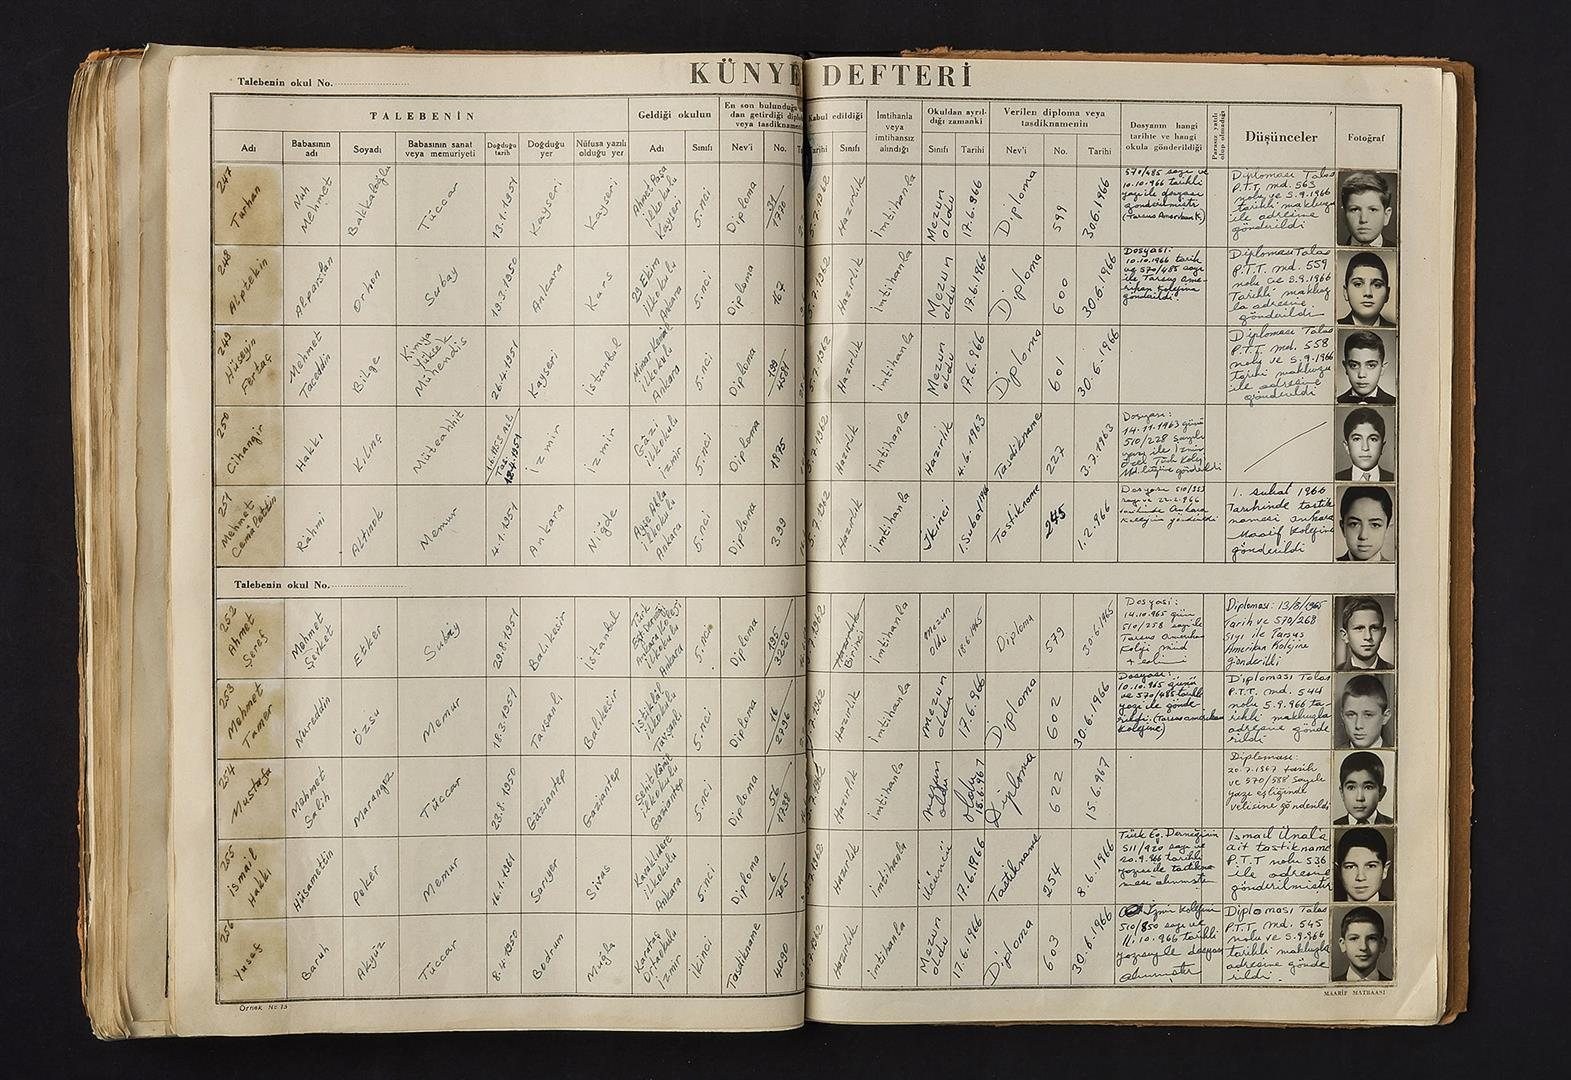 KÜNYE DEFTERİ
Talebenin okul No.
TALEBENİN
Geldiği okulun
En son bulunduğu
dan getirdiği
veya tasdiknamenin
Kabul edildiği
İmtihanla
veya
imtihansız
alındığı
Okuldan ayrıl-
dığı zamanki
Verilen diploma veya
tasdiknamenin
Dosyanın hangi
tarihte ve hangi
okula gönderildiği
Parasız yatılı
olup olmadığı
Düşünceler
Fotoğraf
Adı
Babasının
adı
Soyadı
Babasının sanat
veya memuriyeti
Doğduğu
tarih
Doğduğu
yer
Nüfusa yazılı
olduğu yer
Adı
Sınıfı
Nev'i
No.
Tarihi
Sınıfı
Sınıfı
Tarihi
Nev'i
No.
Tarihi
247
Turhan
Nuh
Mehmet
Bakkaloğlu
Tüccar
13.1.1951
Kayseri
Kayseri
Ahmet Paşa
İlkokulu
Kayseri
5.nci
Diploma
Hazırlık
İmtihanla
Mezun
oldu
17.6.966
Diploma
599
30.6.1966
570/485 sayı ve
10.10.966 tarihli
yazı ile dosyası
gönderilmiştir
(Tarsus Amerikan K)
Diploması Talas
P.T.T. md. 563
nolu ve 5.9.1966
tarihli makbuzu
ile adresine
gönderildi
248
Alptekin
Alparslan
Orhon
Subay
13.3.1950
Ankara
Kars
29 Ekim
İlkokulu
Ankara
5.nci
Diploma
167
Hazırlık
İmtihanla
Mezun
oldu
17.6.1966
Diploma
600
30.6.1966
Dosyası:
10.10.1966 tarih
ve 570/485 sayı
ile Tarsus Ame-
rikan Kolejine
gönderildi
Diploması Talas
P.T.T. md. 559
nolu ve 5.9.1966
Tarihli makbuz
la adresine
gönderildi
249
Hüseyin
Fertaç
Mehmet
Taceddin
Bilge
Kimya
Yüksek
Mühendis
26.4.1951
Kayseri
İstanbul
Mimar Kemal
İlkokulu
Ankara
5.nci
Diploma
Hazırlık
İmtihanla
Mezun
oldu
17.6.966
Diploma
601
30.6.1966
Diploması Talas
P.T.T. md. 558
nolu ve 5.9.1966
tarihi makbuzu
ile adresine
gönderildi
250
Cihangir
Hakkı
Kılınç
Müteahhit
İzmir
İzmir
Gazi
İlkokulu
İzmir
5.nci
Diploma
1875
Hazırlık
İmtihanla
Hazırlık
4.6.1963
Tasdikname
227
3.7.1963
Dosyası:
14.11.1963 günü
510/228 sayılı
yazı ile İzmir
Özel Türk Koleji
251
Mehmet
Rahmi
Altınok
Memur
4.1.1951
Ankara
Niğde
İlkokulu
Ankara
5.nci
Diploma
399
Hazırlık
İmtihanla
İkinci
1.Şubat 1966
Tastikname
245
1.2.966
1. Şubat 1966
Tarihinde tastik
namesi Ankara
Maarif Kolejine
gönderildi
Talebenin okul No.
252
Ahmet
Şeref
Mehmet
Şevket
Etker
Subay
29.8.1951
Balıkesir
İstanbul
İlkokulu
Ankara
5.nci
Diploma
Hazırlık
Birinci
İmtihanla
Mezun
oldu
Diploma
579
30.6.1965
Dosyası:
14.10.965 gün
510/258 sayı ile
Tarsus Amerikan
Diploması: 13/8/1965
Tarih ve 570/268
sayı ile Tarsus
Amerikan Kolejine
gönderildi
253
Mehmet
Tamer
Nureddin
Özsu
Memur
18.3.1951
Tavşanlı
Balıkesir
İstiklâl
İlkokulu
Tavşanlı
5.nci
Diploma
Hazırlık
İmtihanla
mezun
oldu
17.6.966
Diploma
602
30.6.1966
Dosyası:
10.10.965 günü
ve 570/485 tarihli
yazı ile gönde
rildi. (Tarsus amerikan
kolejine)
Diploması Talas
P.T.T. md. 544
nolu 5.9.966 ta-
rihli makbuzla
adresine gönde
rildi
254
Mustafa
Mehmet
Salih
Marangoz
Tüccar
23.8.1950
Gaziantep
Gaziantep
Şehit Kâmil
İlkokulu
Gaziantep
5.nci
Diploma
Hazırlık
İmtihanla
mezun
oldu
15.6.967
Diploma
622
15.6.967
Diploması:
20.7.1967 tarih
ve 570/588 sayılı
yazı eşliğinde
velisine gönderildi
255
İsmail
Hakkı
Hüsamettin
Peker
Memur
16.1.1961
Sarıyer
Sivas
İlkokulu
Ankara
5.nci
Diploma
Hazırlık
İmtihanla
Üçüncü
17.6.1966
Tastikname
254
8.6.1966
Türk Eğ. Derneğinin
511/920 sayı ve
20.9.966 tarihli
yazısı ile tastikna-
mesi alınmıştır
İsmail Ünal'a
ait tastikname
P.T.T nolu 536
ile adresine
gönderilmiştir
256
Yusuf
Baruh
Akyüz
Tüccar
8.4.1950
Bodrum
Muğla
Karataş
Ortaokulu
İzmir
İkinci
Tasdikname
4090
Hazırlık
İmtihanla
Mezun
oldu
17.6.1966
Diploma
603
30.6.1966
İzmir Kolejinin
510/850 sayı ve
11.10.966 tarihli
yazısıyle dosyası
alınmıştır
Diploması Talas
P.T.T md. 545
nolu ve 5.9.966
tarihli makbuzla
adresine gönde
rildi.
Örnek No 15
MAARİF MATBAASI